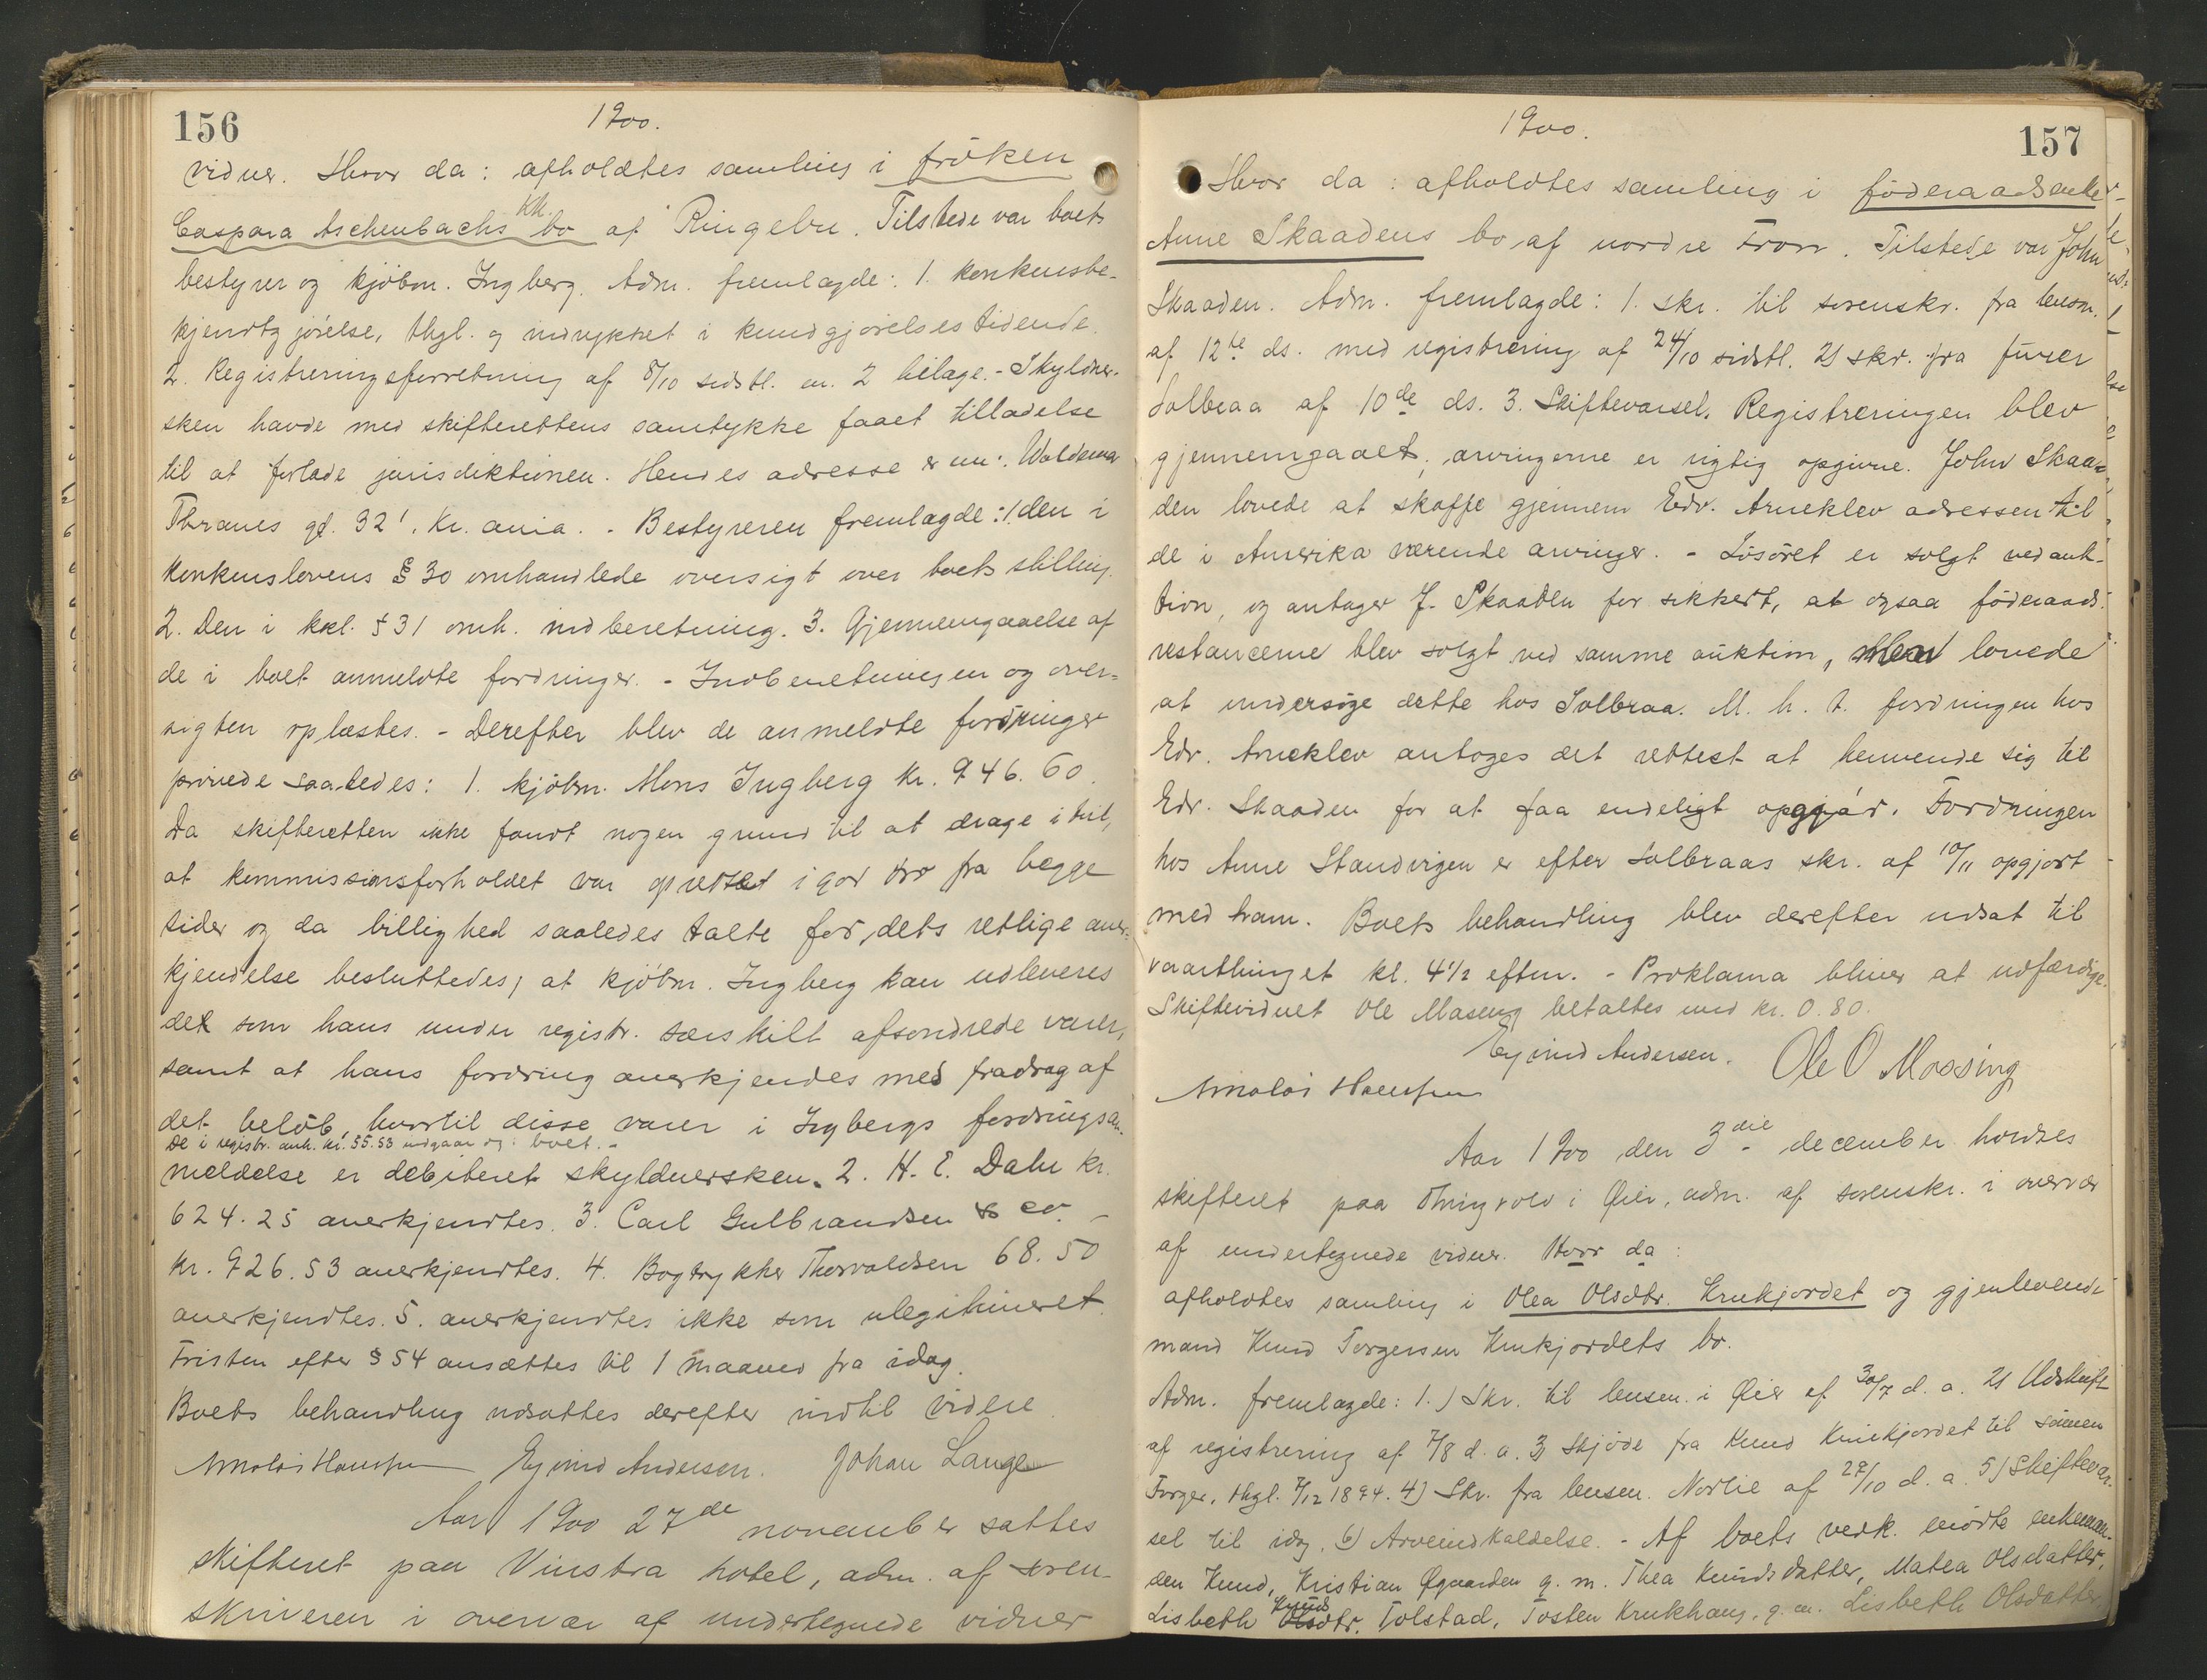 156
1900.
vidner. Hvor da: afholdtes samling i fröken
kk.
Caspara Aschenbachs bo af Ringebu. Tilstede var boets
bestyrer og kjöbm. Ingberg. Adm. fremlagde: 1. konkursbe-
kjendtgjörelse, thgl. og indrykket i kundgjörelsestidende.
2. Registreringsforretning af 8/10 sidstl. m. 2 bilage. - Skyldner-
sken havde med skifterettens samtykke faaet tilladelse
til at forlade jurisdiktionen. Hendes adresse er nu: Waldemar
Thranes gd. 32¹, Kr.ania. - Bestyreren fremlagde: 1. den i
konkurslovens § 30 omhandlede oversigt over boets stilling.
2. Den i kkl. § 31 omh. indberetning. 3. Gjennemgaaelse af
de i boet anmeldte fordringer. - Indberetningen og over-
sigten oplæstes. - Derefter blev de anmeldte fordringer
prövede saaledes: 1. kjöbm. Mons Ingberg kr. 946.60.
Da skifteretten ikke fandt nogen grund til at drage i tvil,
at kommissionsforholdet var oprettet i god tro fra begge
sider og da billighed saaledes talte for dets retlige aner-
kjendelse besluttedes, at kjöbm. Ingberg kan udleveres
det som hans under registr. særskilt afsondrede varer,
samt at hans fordring anerkjendes med fradrag af
det belöb, hvortil disse varer i Ingbergs fordringsan-
De i registr. anh. kr. 55.53 udgaar og boet. -
meldelse er debiteret skyldnersken. 2. H. E. Dahl kr.
624.25 anerkjendtes. 3. Carl Gulbrandsen & co. -
kr. 926.53 anerkjendtes. 4. Bogtrykker Thorvaldsen 68.50
anerkjendtes. 5. anerkjendtes ikke som ulegitimeret.
Fristen efter § 54 ansættes til 1 maaned fra idag.
Boets behandling udsattes derefter indtil videre.
Eyvind Andersen. Johan Lange
Aar 1900 27de november sattes
skifteret paa Vinstra hotel, adm. af soren-
skriveren i overvær af undertegnede vidner
157
1900.
Hvor da: afholdtes samling i föderaadsenke
Anne Skaadens bo af nordre Fron. Tilstede var John
Skaaden. Adm. fremlagde: 1. skr. til sorenskr. fra lensm.
af 12te ds. med registrering af 24/10 sidstl. 2) skr. fra furer
Solbraa af 10de ds. 3. Skiftevarsel. Registreringen blev
gjennemgaaet; arvingerne er rigtig opgivne. John Skaa-
den lovede at skaffe gjennem Edv. Arneklev adressen til
de i Amerika værende arvinger. - Lösöret er solgt ved auk-
tion, og antager J. Skaaden for sikkert, at ogsaa föderaads-
restancerne blev solgt ved samme auktion, men lovede
at undersöge dette hos Solbraa. M. h. t. fordringen hos
Edv. Arneklev antoges det rettest at henvende sig til
Edv. Skaaden for at faa endeligt opgjör. Fordringen
hos Anne Standvigen er efter Solbraas skr. af 10/11 opgjort
med ham. Boets behandling blev derefter udsat til
vaarthinget kl. 4 1/2 efterm. - Proklama bliver at udfærdige.
Skiftevidnet Ole Maseng betaltes med kr. 0.80.
Eyvind Andersen. Ole O Moosing
Aar 1900 den 3die december holdtes
skifteret paa Thingvold i Öier, adm. af sorenskr. i overvær
af undertegnede vidner. Hvor da:
afholdtes samling i Olea Olsdtr. Krukjordet og gjenlevende
mand Knud Torgersen Krukjordets bo.
Adm. fremlagde: 1.) Skr. til lensm. i Öier af 30/7 d. a. 2) Udskrift
af registrering af 7/8 d. a. 3) Skjöde fra Knud Krukjordet til sönnen
Torger, thgl. 7/12 1894. 4) Skr. fra lensm. Norlie af 29/10 d. a. 5) Skiftevar-
sel til idag. 6) Arveindkaldelse. - Af boets vedk. mödte enkeman-
den Knud, Kristian Öygaarden g. m. Thea Knudsdatter, Matea Olsdatter,
Knuds
Lisbeth Olsdtr. Tolstad, Tosten Krukhaug, g. m. Lisbeth Olsdatter,